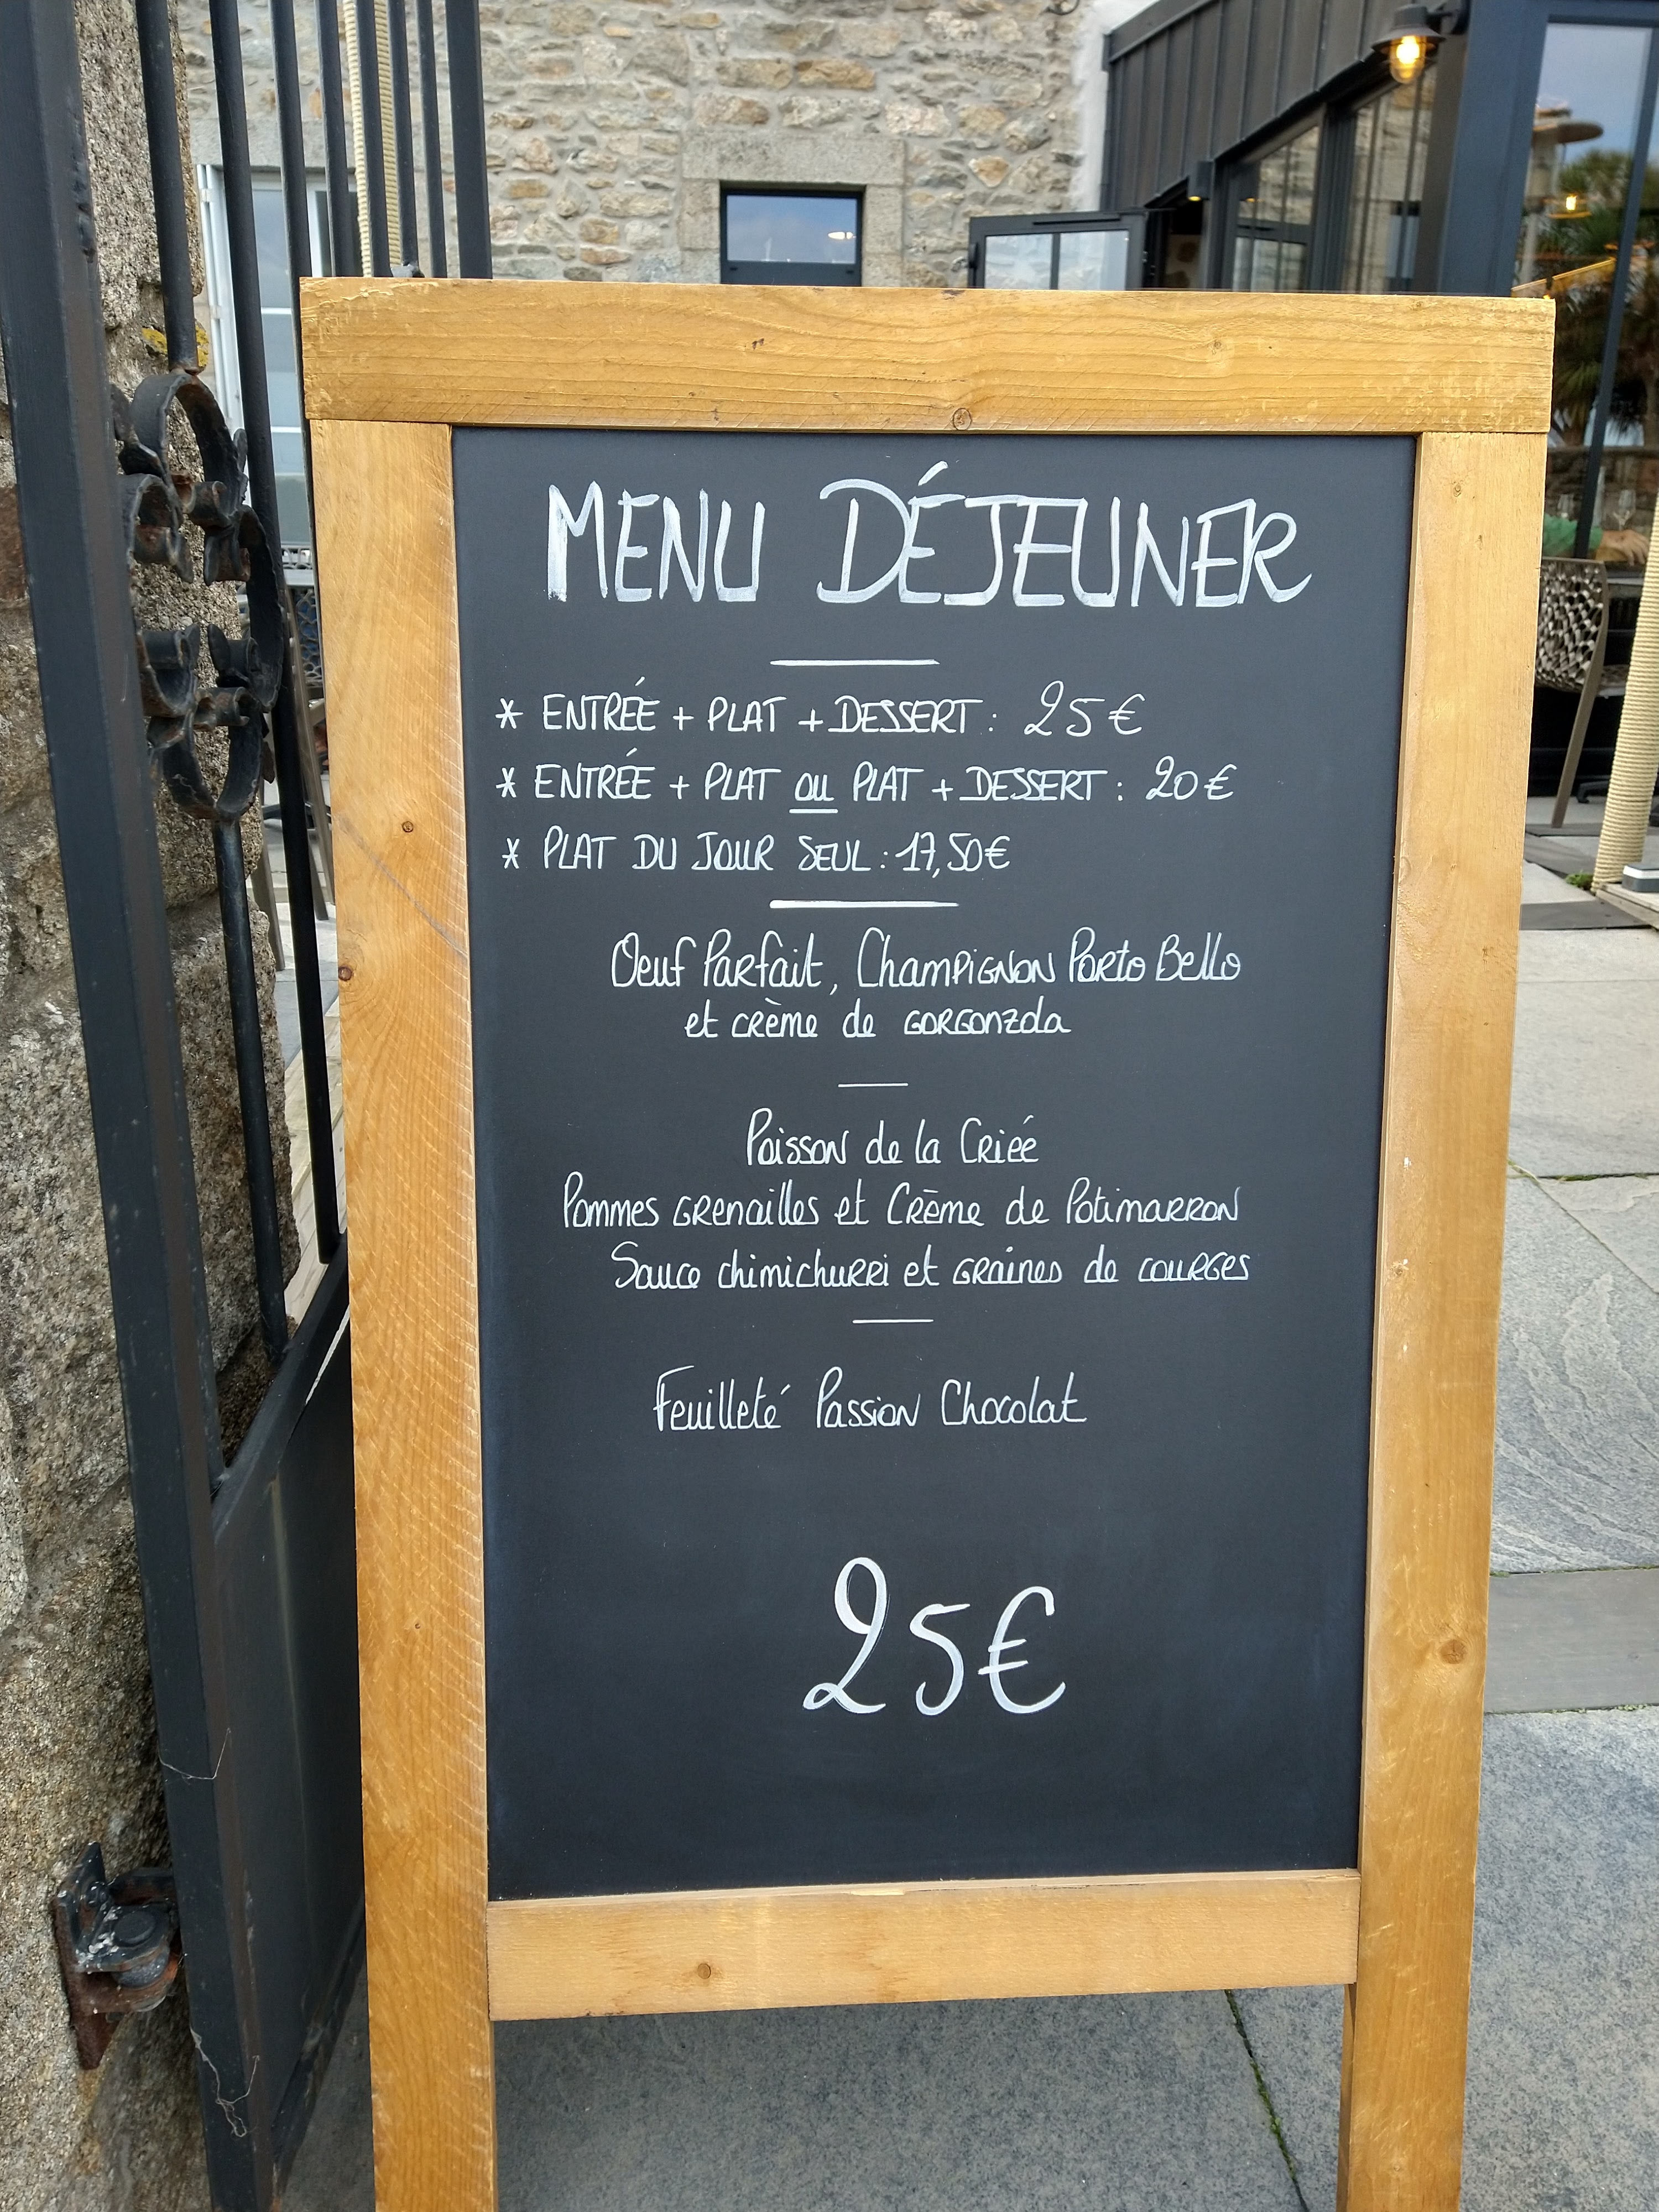 MENU DÉJEUNER
* ENTRÉE + PLAT + DESSERT : 25€
* ENTRÉE + PLAT ou PLAT + DESSERT : 20€
* PLAT DU JOUR SEUL : 17,50€
Oeuf Parfait, Champignon Porto Bello
et crème de gorgonzola
Poisson de la Criée
Pommes grenailles et Crème de Potimarron
Sauce chimichurri et graines de courges
Feuilleté Passion Chocolat
25€